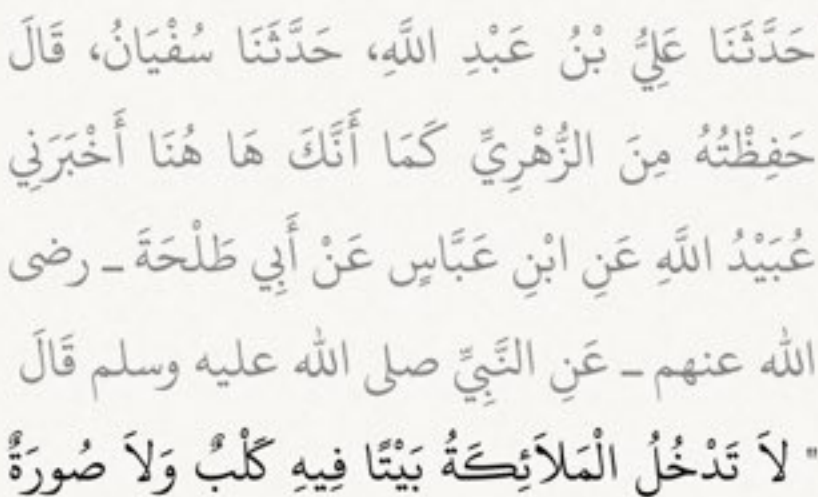 حَدَّثَنَا عَلِيُّ بْنُ عَبْدِ اللَّهِ، حَدَّثَنَا سُفْيَانُ، قَالَ
حَفِظْتُهُ مِنَ الزُّهْرِيِّ كَمَا أَنَّكَ هَا هُنَا أَخْبَرَنِي
عُبَيْدُ اللَّهِ عَنِ ابْنِ عَبَّاسٍ عَنْ أَبِي طَلْحَةَ ـ رضى
الله عنهم ـ عَنِ النَّبِيِّ صلى الله عليه وسلم قَالَ
" لاَ تَدْخُلُ الْمَلاَئِكَةُ بَيْتًا فِيهِ كَلْبٌ وَلاَ صُورَةٌ